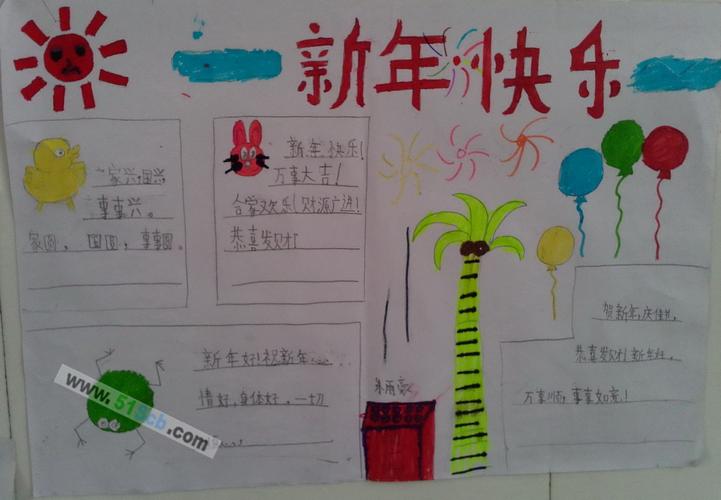 新年快乐
家兴国兴
事事兴。
家圆, 国圆, 事事圆。
新年快乐!
万事大吉!
合家欢乐!财源广进!
恭喜发财
新年好!祝新年……
情好,身体好,一切
……
贺新年,庆佳节,
恭喜发财!新年旺,
万事顺,事事如意!
www.51scb.com